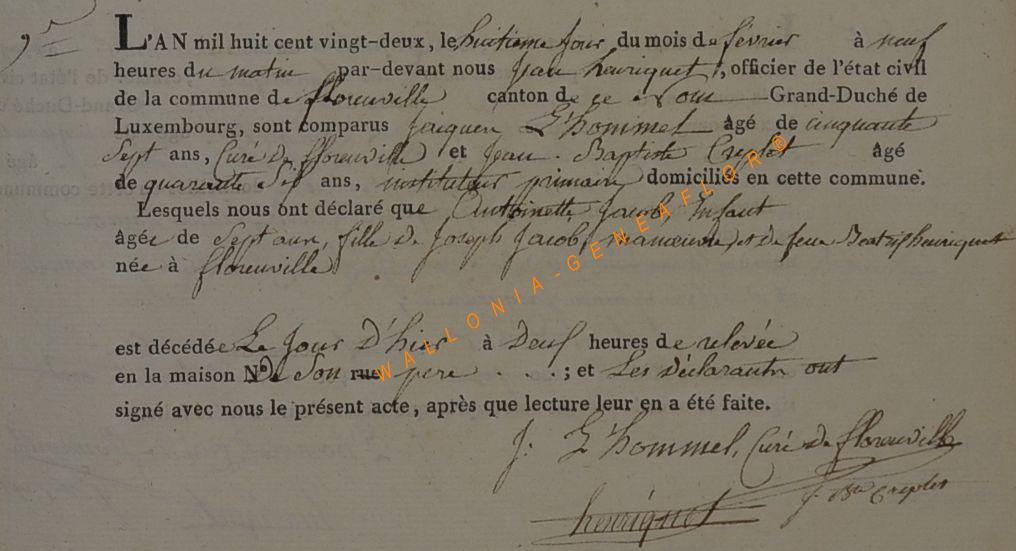 L'AN mil huit cent vingt-deux, le huitieme Jour du mois de fevrier à neuf
heures du matin par-devant nous Jean henriquet, officier de l'état civil
de la commune de florenville canton de Grand-Duché de
Luxembourg, sont comparus Jacques L'hommel âgé de cinquante
Sept ans, Curé de florenville et Jean Baptiste Creplet âgé
de quarante Six ans, instituteur primaire domiciliés en cette commune.
Lesquels nous ont déclaré que Antoinette Jacob, Enfant
âgée de Sept ans, fille de Joseph Jacob, manoeuvre, et de feue henriquet
née à florenville
est décédée Le Jour D'hier à Deux heures de relevée
en la maison De Son pere . . . ; et Les déclarants ont
signé avec nous le présent acte, après que lecture leur en a été faite.
J. L'hommel, Curé de florenville
J. Bte Creplet
henriquet
WALLONIA-GENEAFLOR®